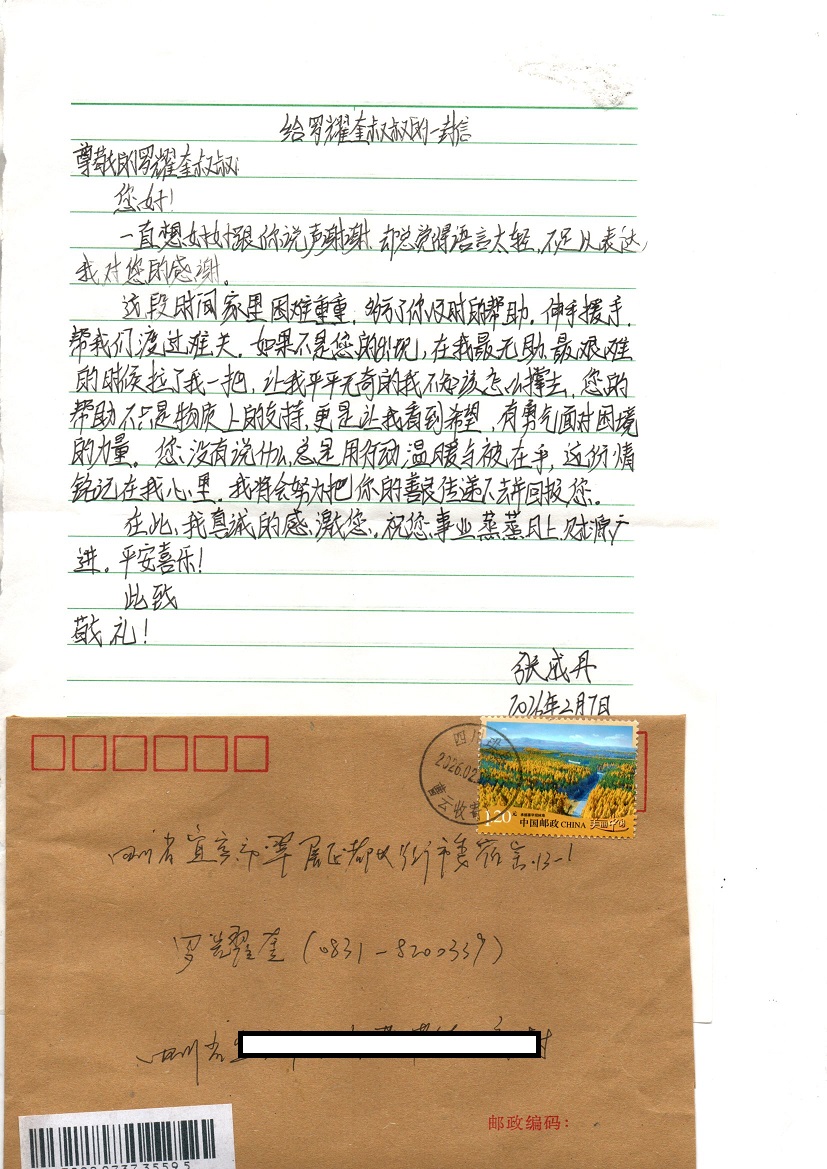 给罗耀奎叔叔的一封信
尊敬的罗耀奎叔叔:
您好!
一直想好好跟你说声谢谢,却总觉得语言太轻,不足以表达,
我对您的感谢。
这段时间家里困难重重,给予了你及时的帮助。伸手援手,
帮我们渡过难关。如果不是您的出现,在我最无助、最艰难
的时候拉了我一把,让我平平无奇的我不知该怎么撑去,您的
帮助不只是物质上的支持,更是让我看到希望,有勇气面对困境
的力量。您没有说什么,总是用行动温暖与被在乎,这份情
铭记在我心里。我将会努力把你的善良传递下去并回报您。
在此,我真诚的感激您,祝您事业蒸蒸日上,财源广
进。平安喜乐!
此致
敬礼!
张成丹
2026年2月7日
四川
2026.02
收寄
120分
中国邮政 CHINA
美丽中国
四川省宜宾市翠屏区都长街市委宿舍13-1
罗耀奎(0831-8200339)
四川省
邮政编码: